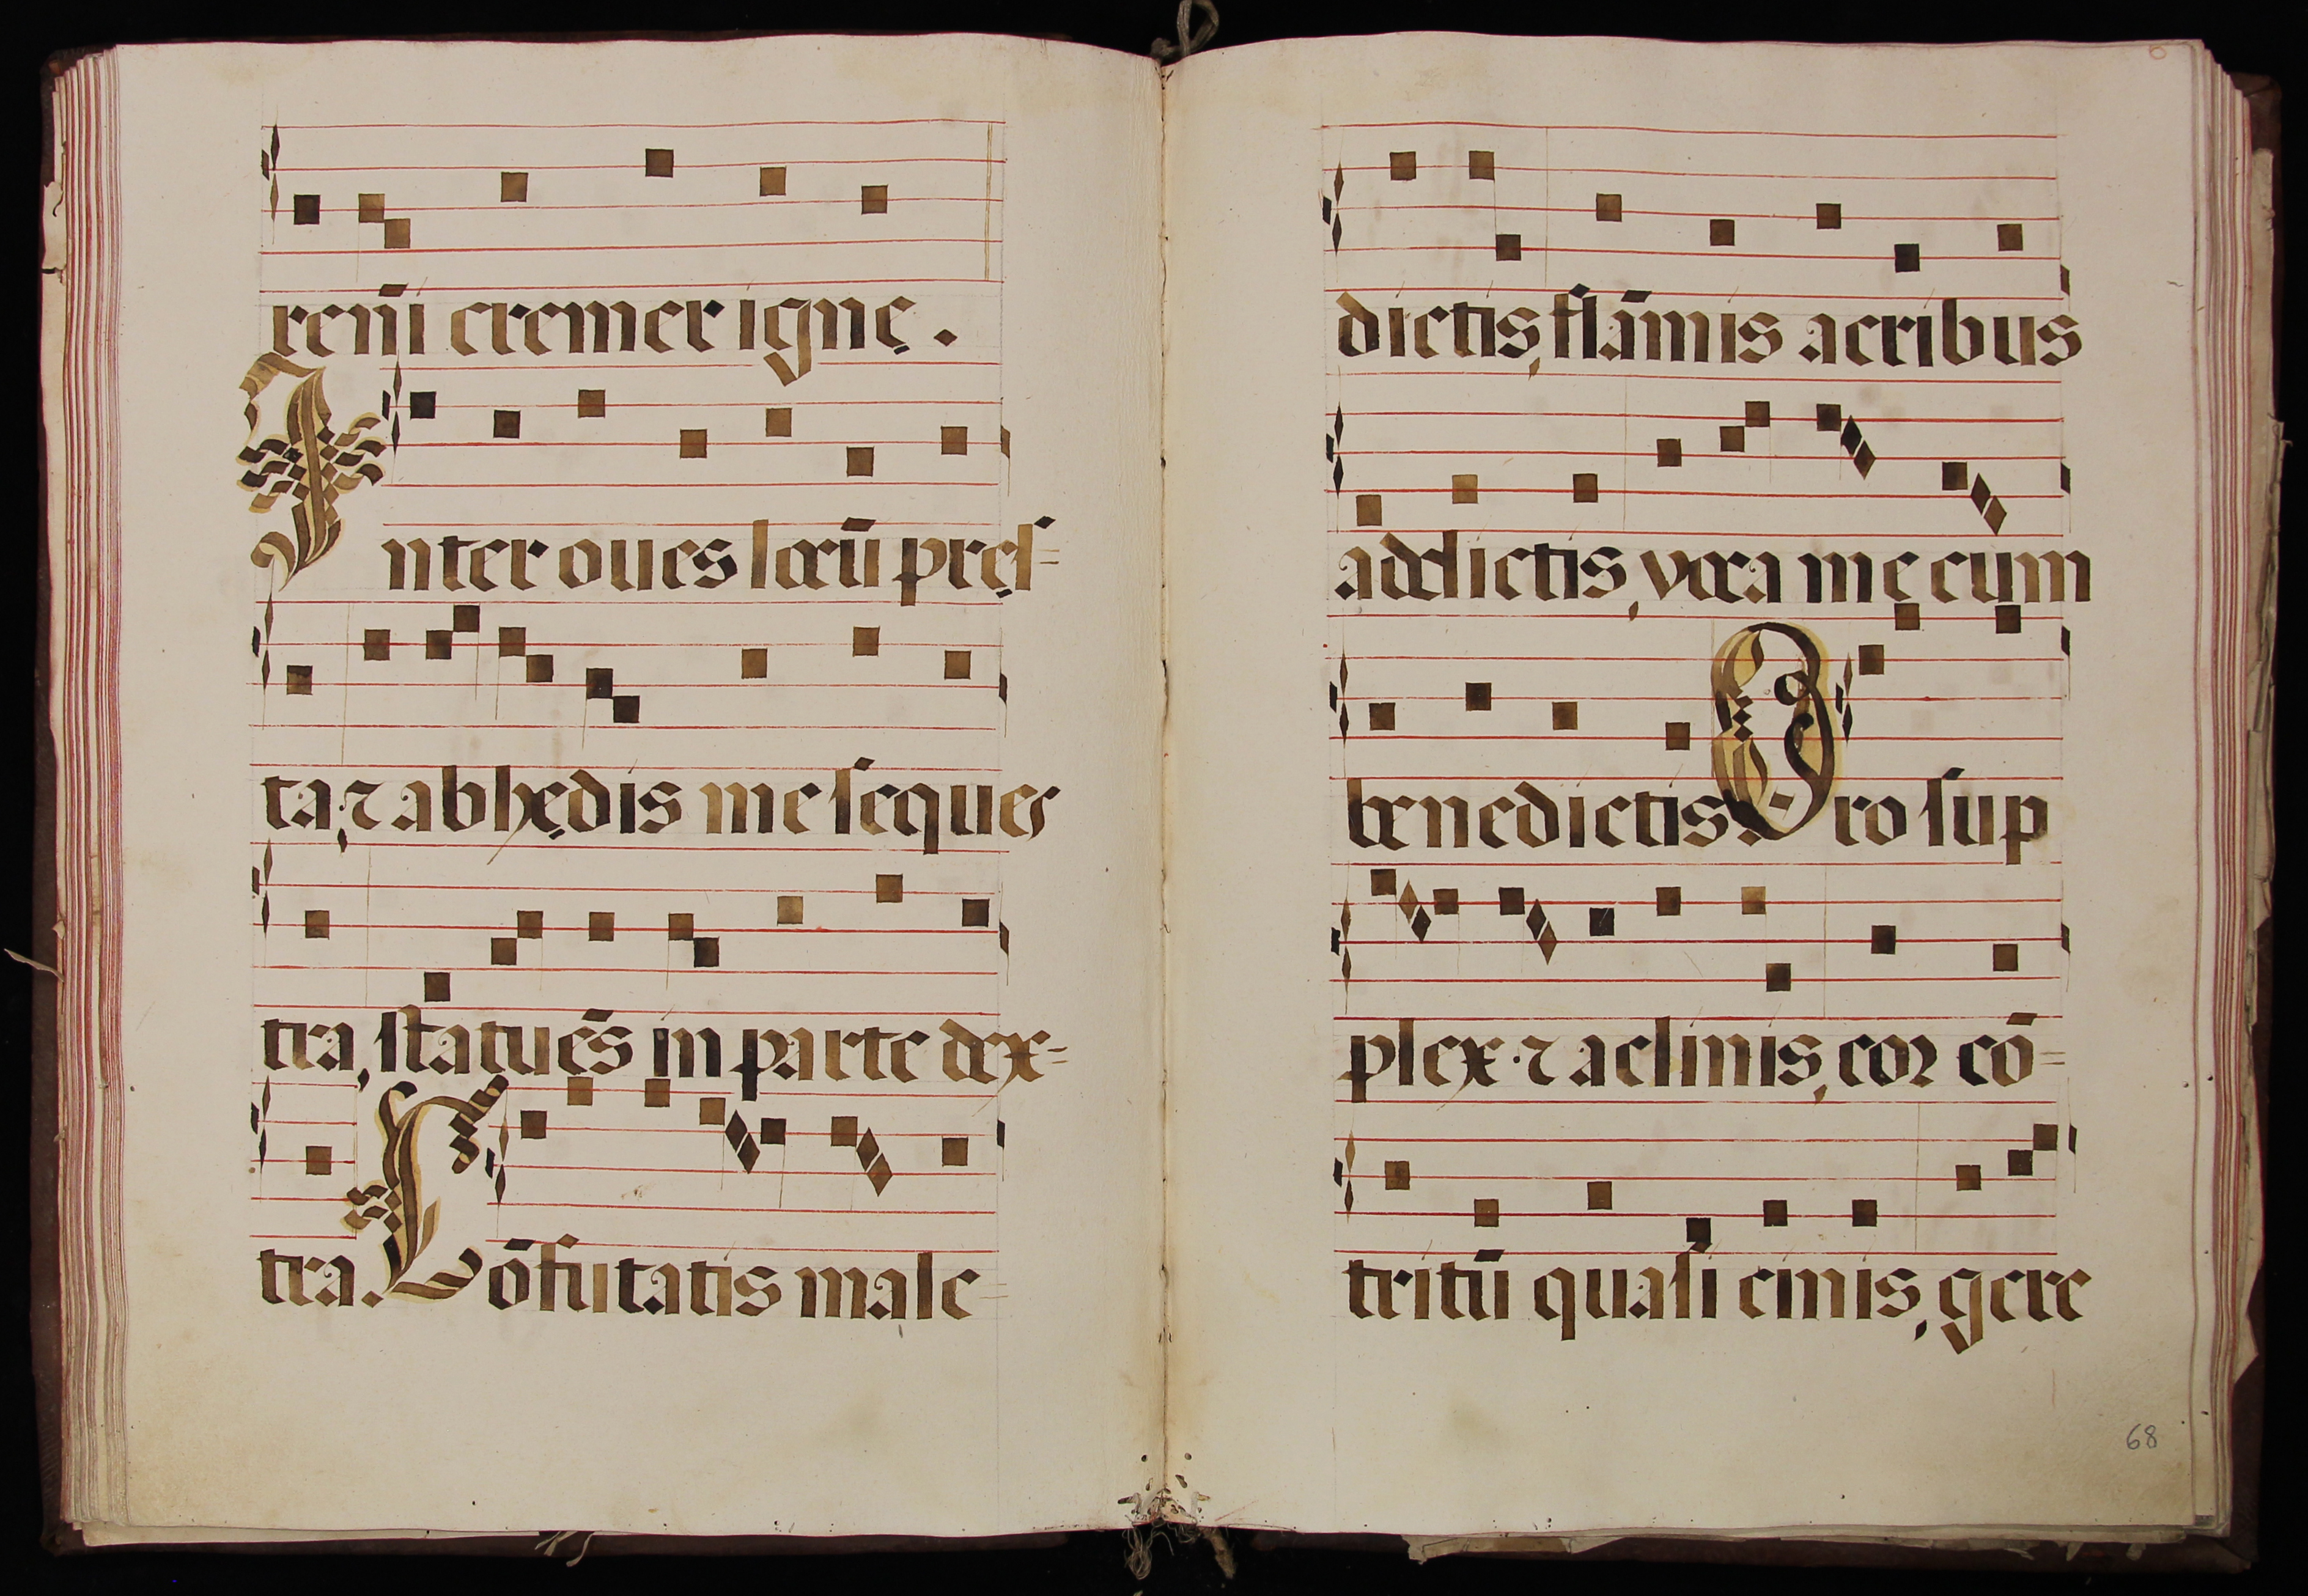 reñi cremer igne.
Inter oues locū pręſ=
ta, ⁊ ab hędis me ſeques
tra, ſtatuēs in parte dex=
tra. Cōfutatis male=
dictis, flāmis acribus
addictis, voca mę cum
benedictis. Oro ſup
plex ⁊ aclinis, coꝛ cō=
tritū quaſi cinis, gere
68